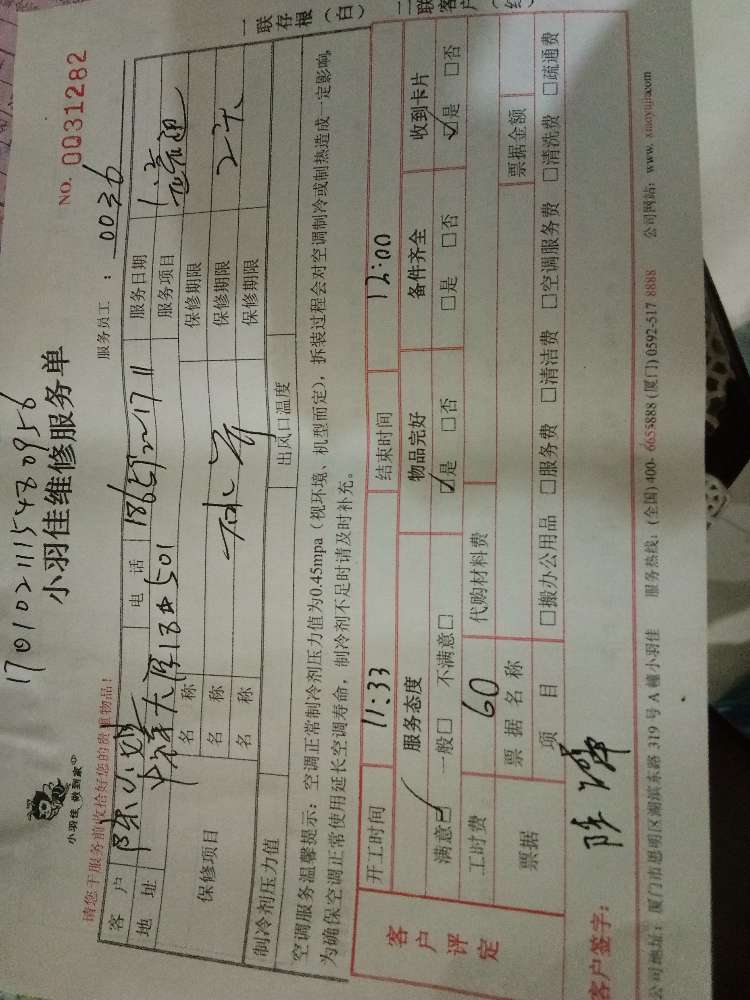 小羽佳 做到家
小羽佳维修服务单
NO. 0031282
请您于服务前收拾好您的贵重物品!
服务员工 : 0036
客 户 陈小姐 电 话 服务日期
地 址 服务项目
保修项目
名 称 保修期限
名 称 保修期限 2天
名 称 保修期限
制冷剂压力值 出风口温度
空调服务温馨提示:空调正常制冷剂压力值为0.45mpa(视环境、机型而定),拆装过程会对空调制冷或制热造成一定影响,
为确保空调正常使用延长空调寿命,制冷剂不足时请及时补充。
一联存根(白) 二联客户
客户评定
开工时间 11:33 结束时间 12:00
服务态度 物品完好 备件齐全 收到卡片
满意☑ 一般□ 不满意□ ☑是 □否 □是 □否 ☑是 □否
工时费 60 代购材料费
票据 票据名称 票据金额
项 目 □搬办公用品 □服务费 □清洁费 □空调服务费 □清洗费 □疏通费
客户签字:
公司地址:厦门市思明区湖滨东路 319 号 A 幢小羽佳 服务热线:(全国)400-6655888 (厦门)0592-517 8888 公司网站:www. xiaoyujia.com